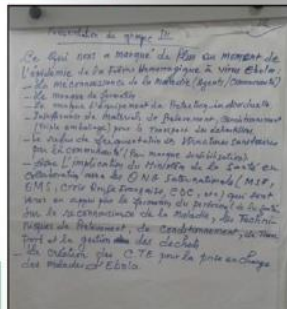 Présentation du groupe III
Ce qui nous a marqué de plus au moment de
l'épidémie de la fièvre Hémorragique à virus Ebola:
- La méconnaissance de la maladie (Agents/Communauté)
- Le manque de formation
- Le manque d'équipement de Protection individuelle
- Insuffisance de Matériels de Prélèvement, conditionnement
(triple emballage) pour le Transport des échantillons
- Le refus de fréquentation des structures sanitaires
par la communauté (Par manque sensibilisation)
- L'implication du Ministère de la Santé en
collaboration avec les ONG Internationales (MSF,
OMS, Croix Rouge Française, CDC, etc) qui sont
venus en appui par la formation du personnel de la santé
Sur la reconnaissance de la Maladie, les Techni-
ques de Prélèvement, de conditionnement, de Trans
Port et la gestion des déchets
- La création des C.TE pour la prise en charge
des malades d'Ebola.